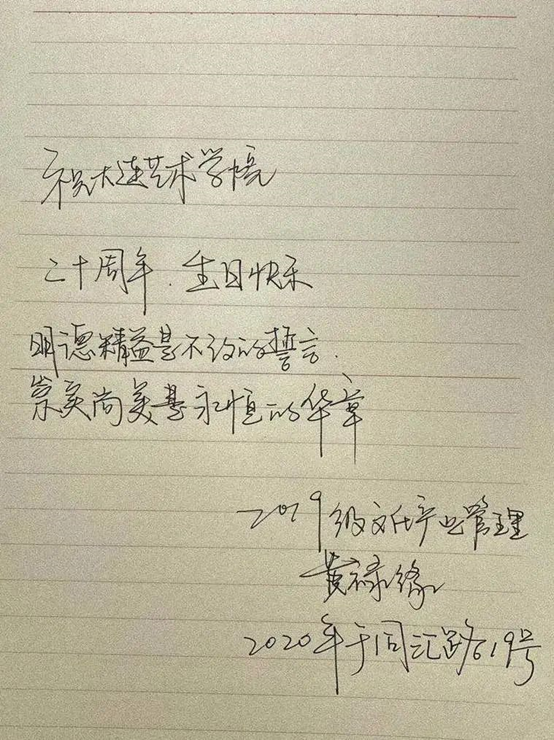 祝大连艺术学院
二十周年.生日快乐
明德精益是不改的誓言.
崇实尚美是永恒的华章
2019级文化产业管理
黄禄缘
2020年于同汇路19号